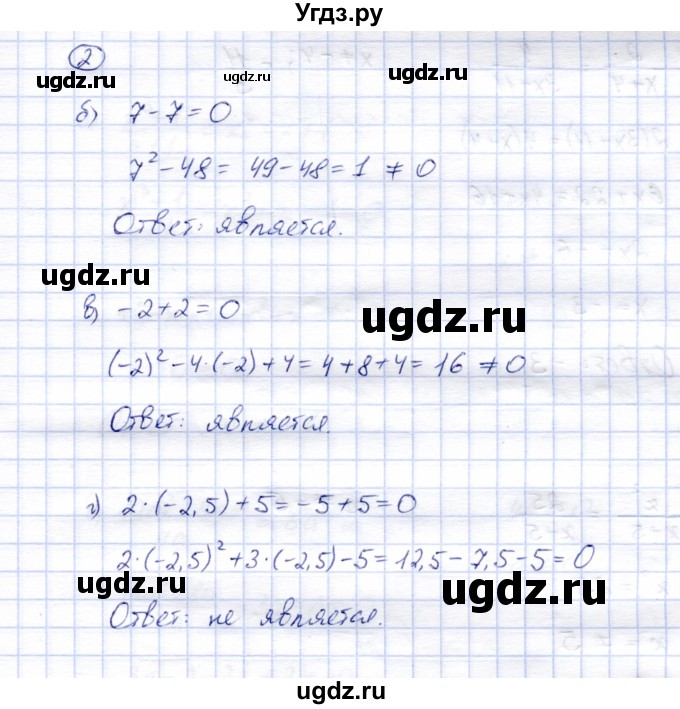 Угдз.ру
2
ugdz.ru ugdz.ru ugdz.ru
б) 7 - 7 = 0
7² - 48 = 49 - 48 = 1 ≠ 0
Ответ: является.
ugdz.ru
в) -2 + 2 = 0
ugdz.ru
(-2)² - 4·(-2) + 4 = 4 + 8 + 4 = 16 ≠ 0
Ответ: является.
ugdz.ru
г) 2·(-2,5) + 5 = -5 + 5 = 0
2·(-2,5)² + 3·(-2,5) - 5 = 12,5 - 7,5 - 5 = 0
ugdz.ru ugdz.ru
Ответ: не является.
ugdz.ru